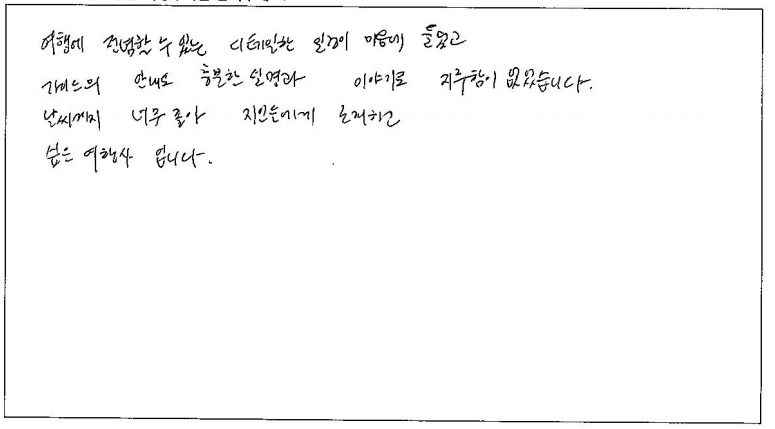 여행에 전념할 수 있는 디테일한 일정이 마음에 들었고
가이드의 안내도 충분한 설명과 이야기로 지루함이 없었습니다.
날씨까지 너무 좋아 지인들에게 하고
싶은 여행사 입니다.